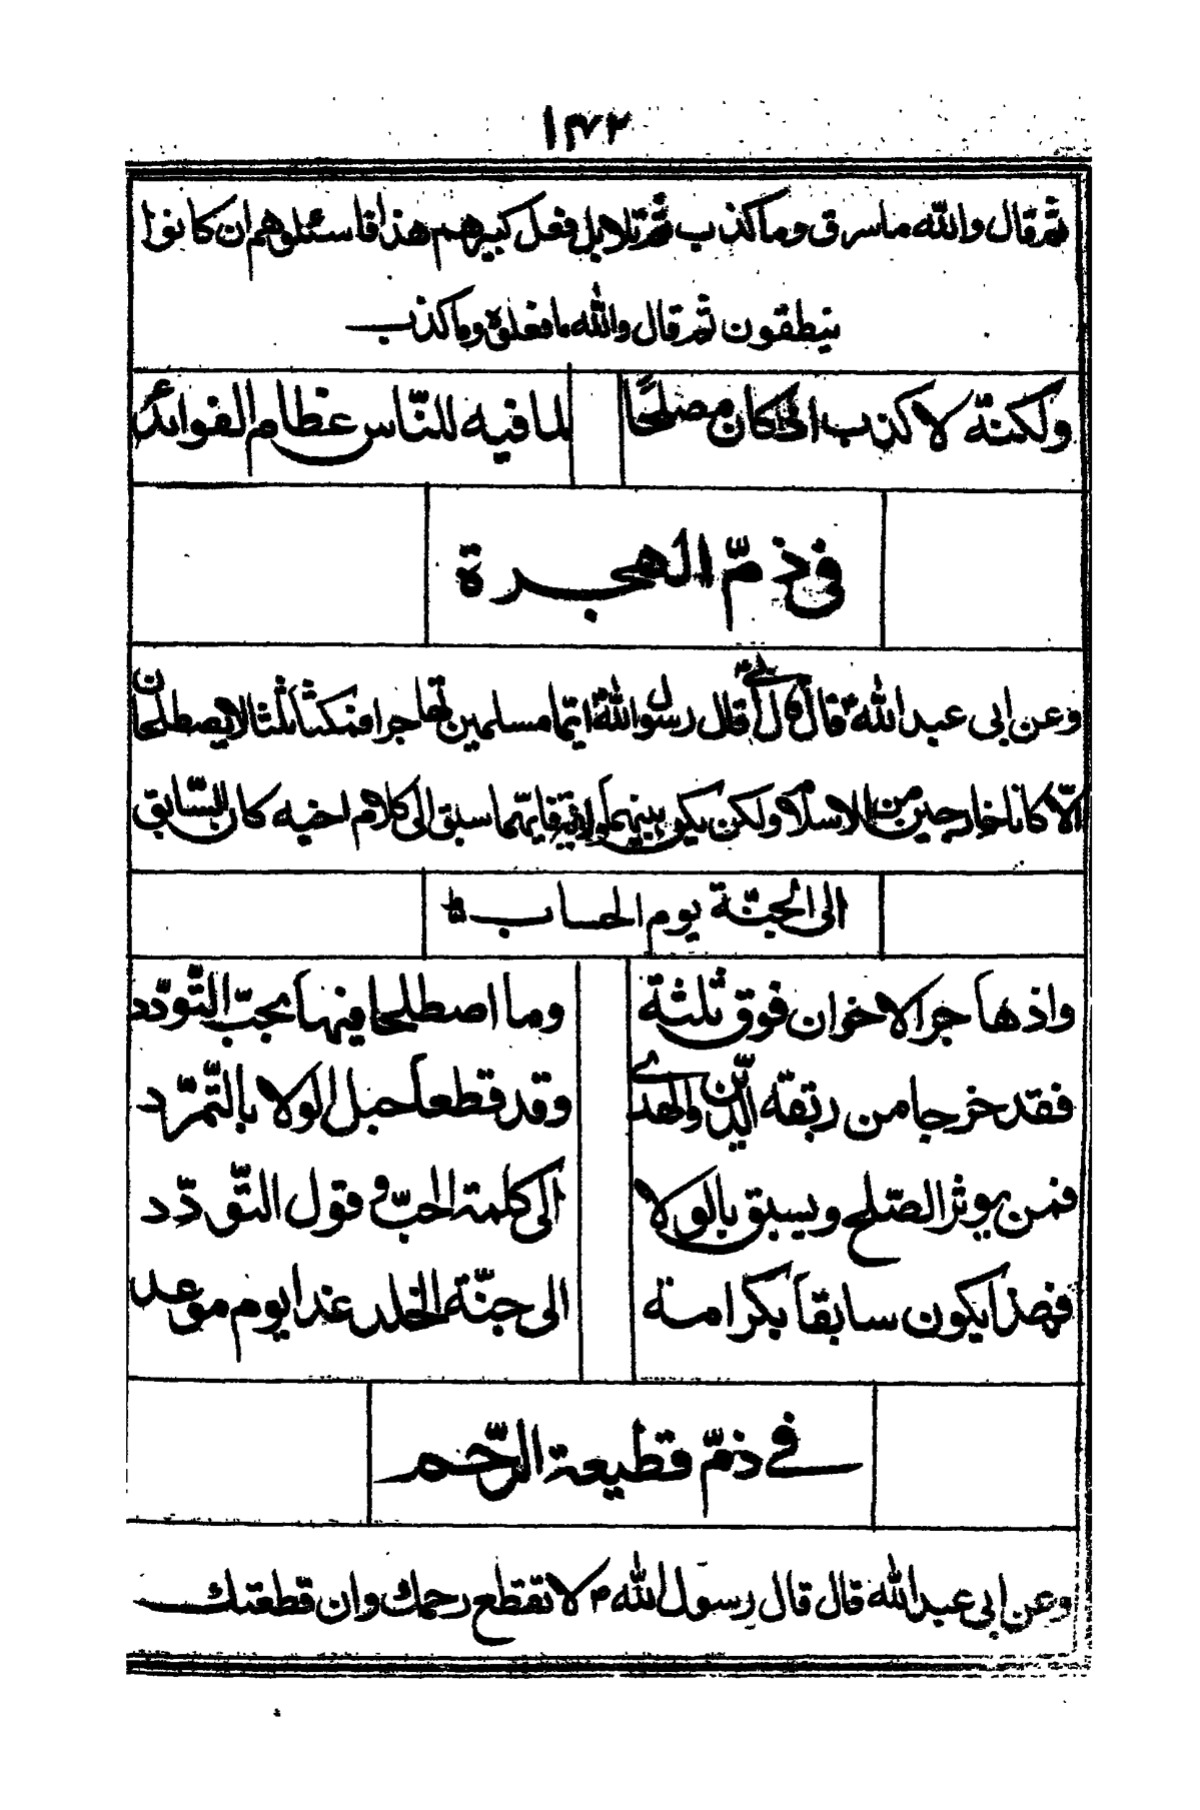 ١٣٧٢
ثم قال والله ما سرق وما كذب ثم تلا بل فعل كبيرهم هذا فاسئلوهم ان كانوا
ينطقون ثم قال والله ما فعلوه وما كذب
ولكنّه لا كذب الى كان مصلحًا لما فيه للنّاس عظام الفوائد
فى ذمّ الهجرة
وعن ابى عبد الله قال قال ابى قال رسول الله ايّما مسلمين تهاجرا فمكثا ثلثا لا يصطلحان
الّا كانا خارجين من الاسلام ولكن يكو بينهما ولاية فايّهما سبق الى كلام اخيه كان السّابق
الى الجنّة يوم الحساب
واذ هاجر الاخوان فوق ثلثة وما اصطلحا فيها بحبّ التّودّد
فقد خرجا من ربقة الدّين والهدى وقد قطعا حبل الولا بالتّمرّد
فمن يوثر الصّلح ويسبق بالولا الى كلمة الحبّ وقول التّودّد
فهذا يكون سابقا بكرامة الى جنّة الخلد غدا يوم موعد
فى ذمّ قطيعة الرّحم
وعن ابى عبد الله قال قال رسول الله لا تقطع رحمك وان قطعتك